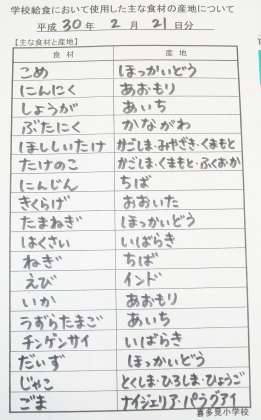 学校給食において使用した主な食材の産地について
平成 30 年 2 月 21 日分
【主な食材と産地】
食材 産地
こめ ほっかいどう
にんにく あおもり
しょうが あいち
ぶたにく かながわ
ほししいたけ かごしま・みやざき・くまもと
たけのこ かごしま・くまもと・ふくおか
にんじん ちば
きくらげ おおいた
たまねぎ ほっかいどう
はくさい いばらき
ねぎ ちば
えび インド
いか あおもり
うずらたまご あいち
チンゲンサイ いばらき
だいず ほっかいどう
じゃこ とくしま・ひろしま・ひょうご
ごま ナイジェリア・パラグアイ
喜多見小学校